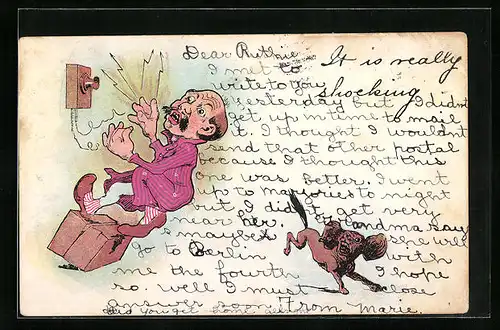 Dear Ruthie
It is really
shocking
I met to
write to you
yesterday but I didnt
get up in time to mail
it. I thought I wouldnt
send that other postal
because I thought this
one was better. I went
up to marjories to night
but I didnt get very
near her. Grandma say
s maybe she will
go to Berlin with
me the fourth I hope
so. well I must close
answer soon From Marie.
did you get home